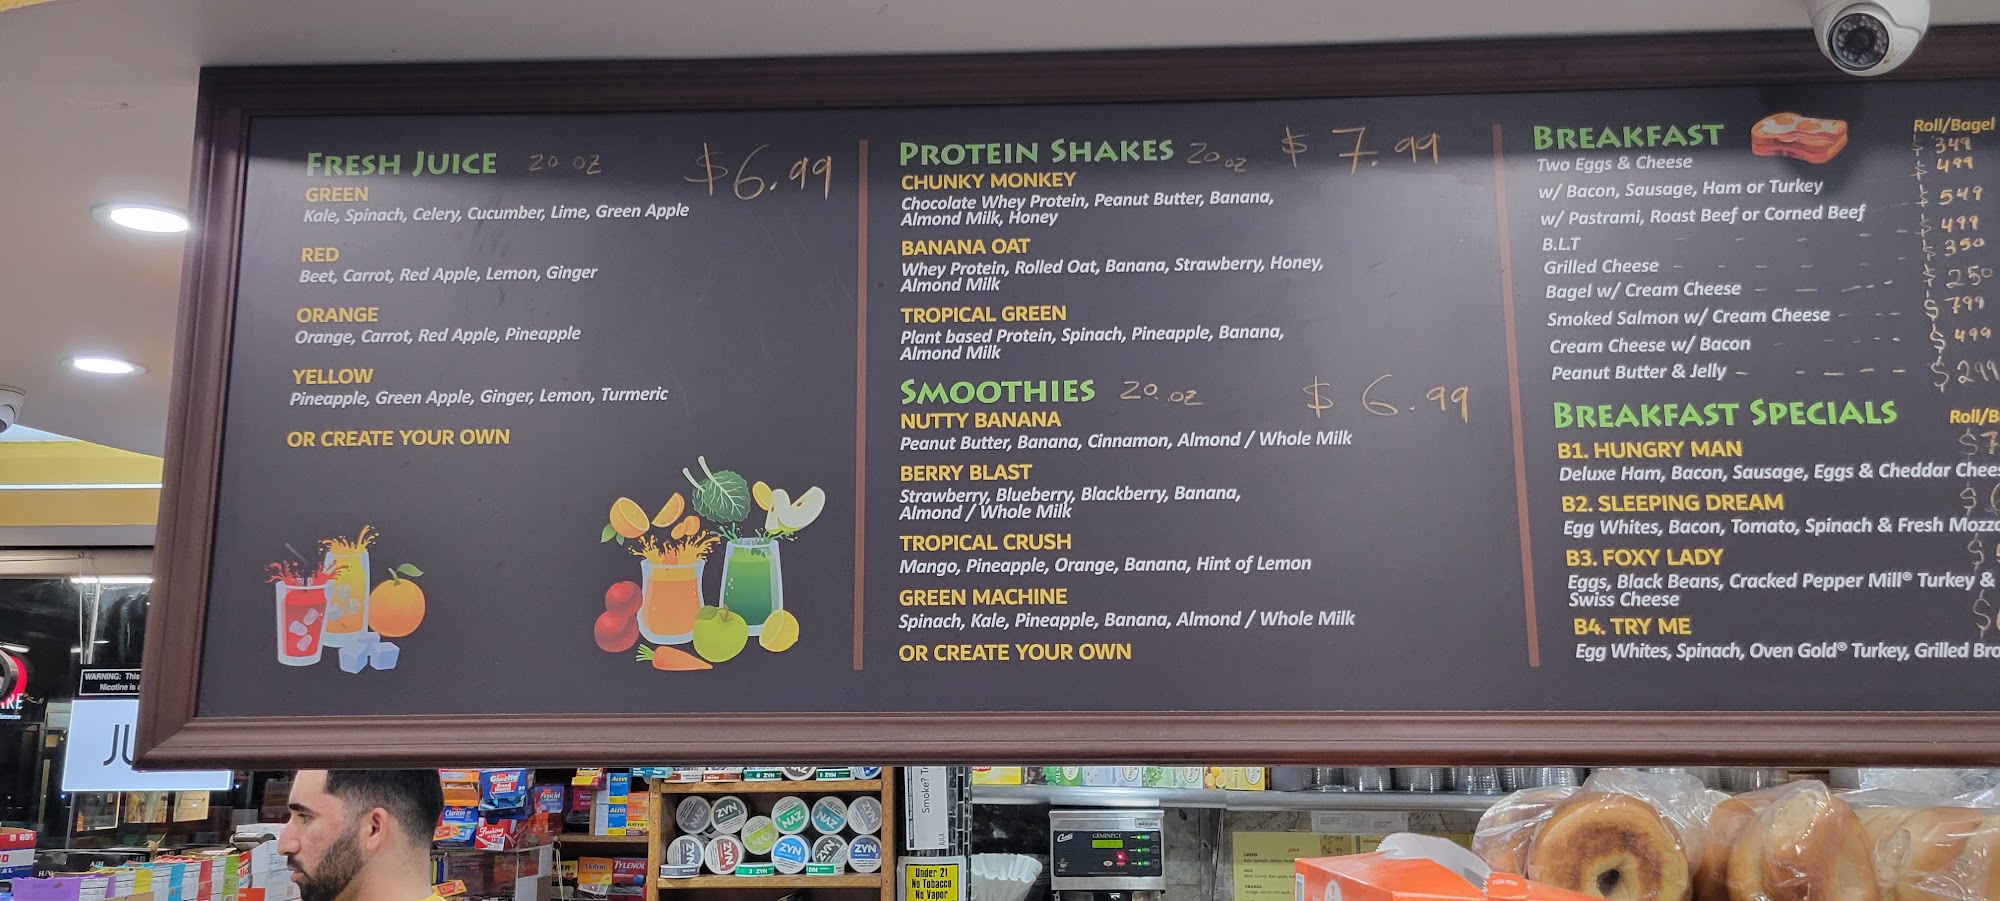 FRESH JUICE 20 OZ $6.99
GREEN
Kale, Spinach, Celery, Cucumber, Lime, Green Apple
RED
Beet, Carrot, Red Apple, Lemon, Ginger
ORANGE
Orange, Carrot, Red Apple, Pineapple
YELLOW
Pineapple, Green Apple, Ginger, Lemon, Turmeric
OR CREATE YOUR OWN
PROTEIN SHAKES 20 OZ $7.99
CHUNKY MONKEY
Chocolate Whey Protein, Peanut Butter, Banana,
Almond Milk, Honey
BANANA OAT
Whey Protein, Rolled Oat, Banana, Strawberry, Honey,
Almond Milk
TROPICAL GREEN
Plant based Protein, Spinach, Pineapple, Banana,
Almond Milk
SMOOTHIES 20.OZ $6.99
NUTTY BANANA
Peanut Butter, Banana, Cinnamon, Almond / Whole Milk
BERRY BLAST
Strawberry, Blueberry, Blackberry, Banana,
Almond / Whole Milk
TROPICAL CRUSH
Mango, Pineapple, Orange, Banana, Hint of Lemon
GREEN MACHINE
Spinach, Kale, Pineapple, Banana, Almond / Whole Milk
OR CREATE YOUR OWN
BREAKFAST Roll/Bagel
Two Eggs & Cheese $349
w/ Bacon, Sausage, Ham or Turkey $499
w/ Pastrami, Roast Beef or Corned Beef $549
B.L.T $499
Grilled Cheese $350
Bagel w/ Cream Cheese $250
Smoked Salmon w/ Cream Cheese $799
Cream Cheese w/ Bacon $499
Peanut Butter & Jelly $299
BREAKFAST SPECIALS Roll/B
B1. HUNGRY MAN $7
Deluxe Ham, Bacon, Sausage, Eggs & Cheddar Chees
B2. SLEEPING DREAM $
Egg Whites, Bacon, Tomato, Spinach & Fresh Mozza
B3. FOXY LADY $
Eggs, Black Beans, Cracked Pepper Mill® Turkey &
Swiss Cheese
B4. TRY ME $
Egg Whites, Spinach, Oven Gold® Turkey, Grilled Bro
WARNING: This
Nicotine is
JU
ZYN
ZYN
ZYN
TYLENOL
Smoke?
GEMINI
Under 21
No Tobacco
No Vapor